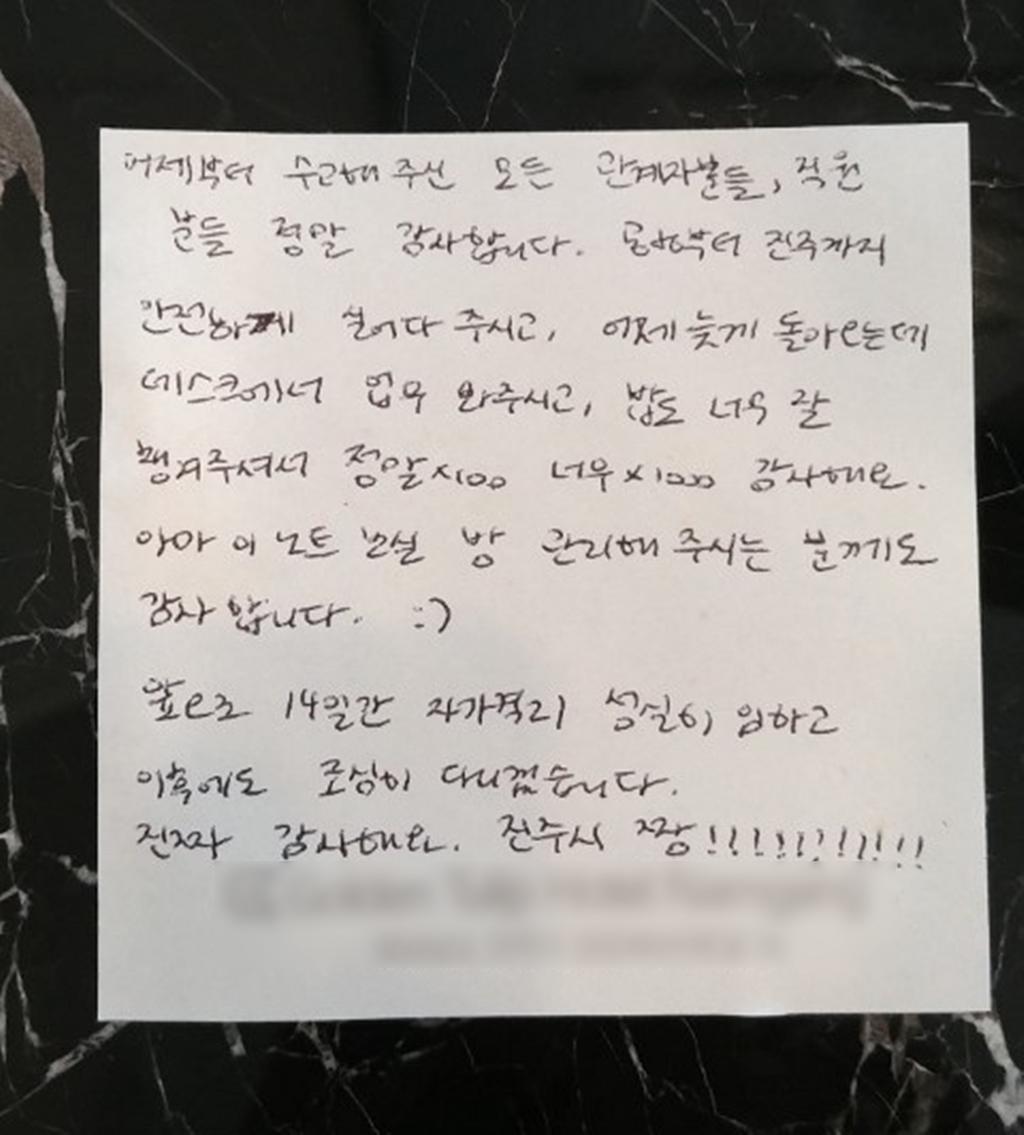 어제부터 수고해 주신 모든 관계자분들, 직원
분들 정말 감사합니다. 공항부터 전주까지
안전하게 실어다 주시고, 어제 늦게 돌아오는데
데스크에서 업무 와주시고, 밥도 너무 잘
챙겨주셔서 정말×100 너무×1000 감사해요.
아마 이 노트 보실 방 관리해 주시는 분께도
감사합니다. :)
앞으로 14일간 자가격리 성실히 임하고
이후에도 조심히 다니겠습니다.
진짜 감사해요. 전주시 짱!!!!!!!!!!